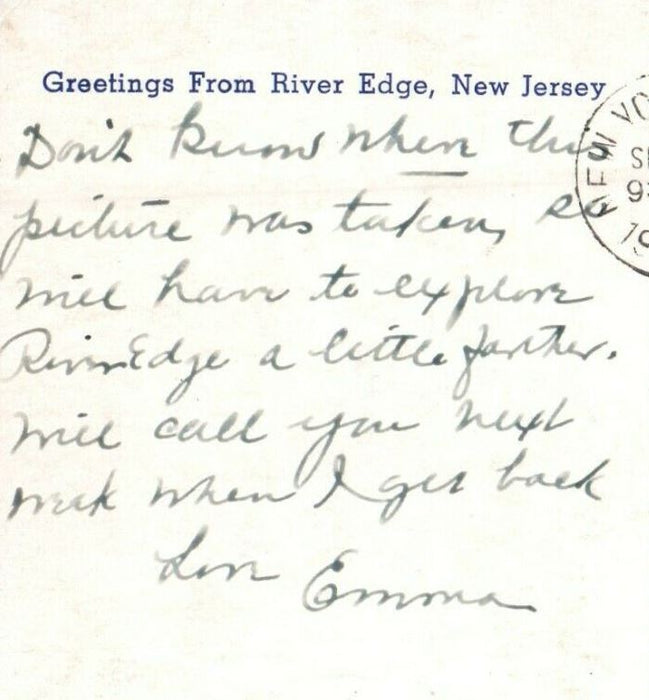 Greetings From River Edge, New Jersey
Don't know when this
picture was taken, so
will have to explore
River Edge a little farther.
Will call you next
week when I get back
Love Emma
NEW YO
SE
9
19